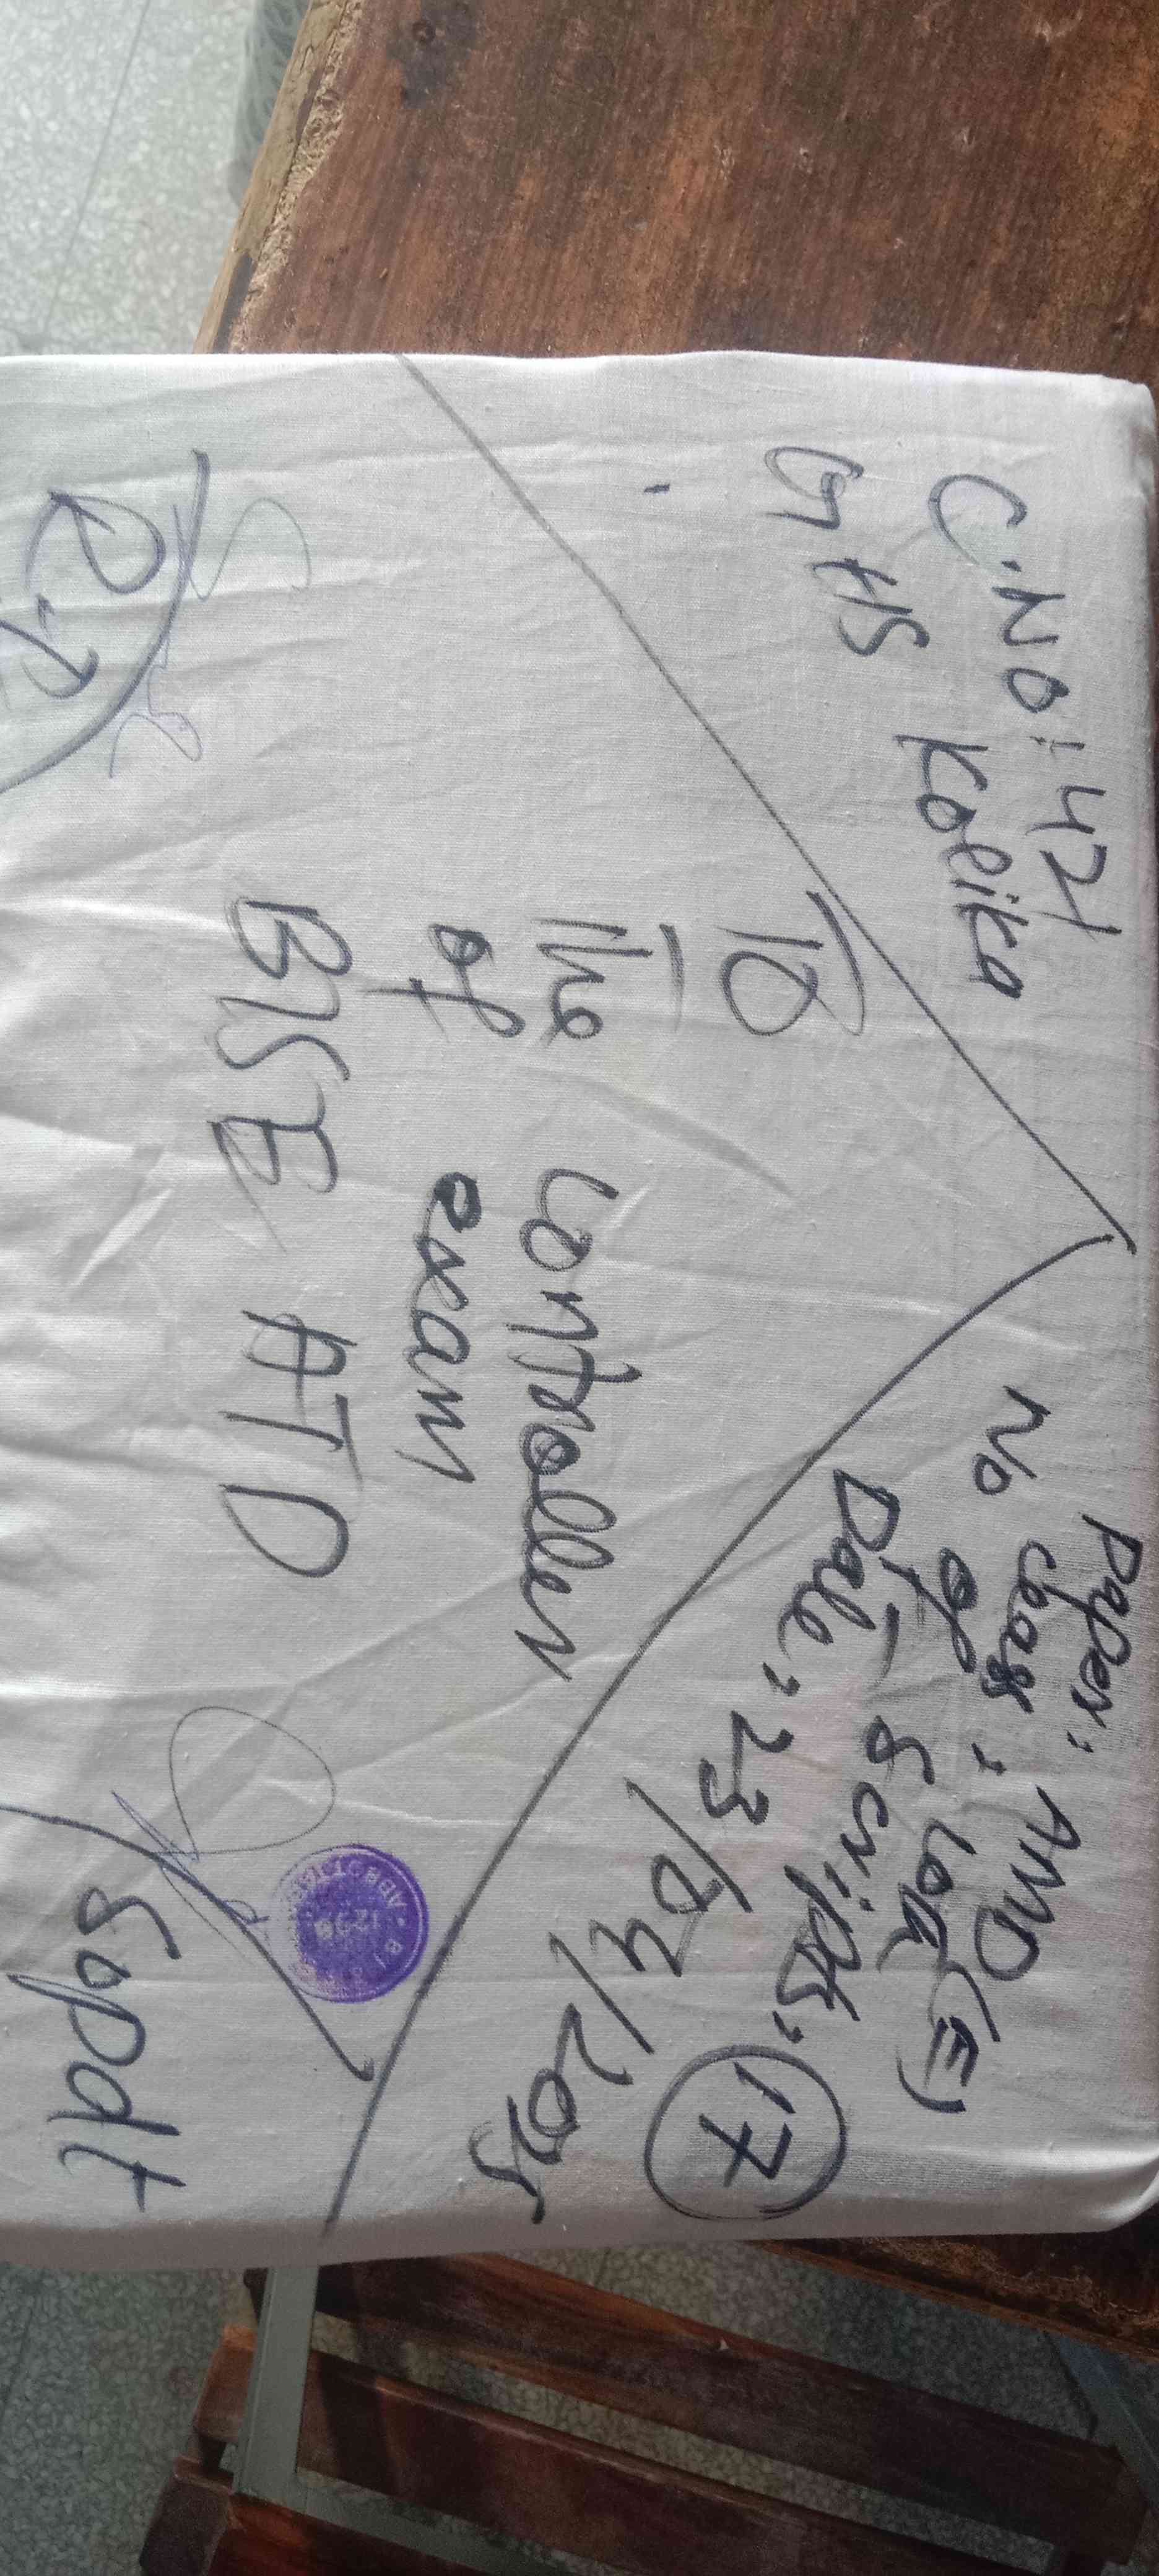 C.No: 421
GHS Kolika
Paper: AMD(E)
Class: 10th
No of Scripts: 17
Date: 23/04/2025
To
The Controller
of exam
BISE ATD
R.P
Supdt